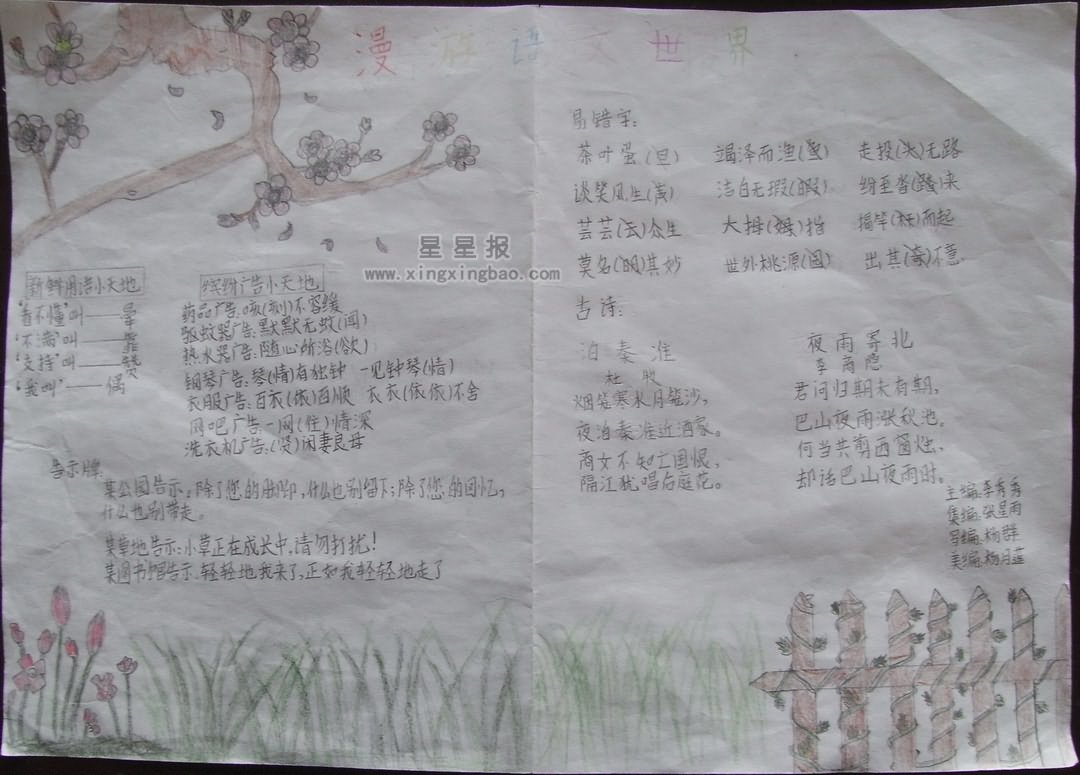 漫游语文世界
星星报
www.xingxingbao.com
新鲜用语小天地
"看不懂"叫——晕
"不满"叫——靠
"支持"叫——顶
"我"叫——偶
缤纷广告小天地
药品广告:咳(刻)不容缓
驱蚊器广告:默默无蚊(闻)
热水器广告:随心所浴(欲)
钢琴广告:琴(情)有独钟 一见钟琴(情)
衣服广告:百衣(依)百顺 衣衣(依依)不舍
网吧广告一网(往)情深
洗衣机广告:(贤)闲妻良母
告示牌:
某公园告示:除了您的脚印,什么也别留下;除了您,的回忆,
什么也别带走。
某草地告示:小草正在成长中,请勿打扰!
某图书馆告示:轻轻地我来了,正如我轻轻地走了
易错字:
茶叶蛋(旦) 竭泽而渔(鱼) 走投(头)无路
谈笑风生(声) 洁白无瑕(暇) 纷至沓(踏)来
芸芸(云)众生 大拇(姆)指 揭竿(杆)而起
莫名(明)其妙 世外桃源(园) 出其(奇)不意
古诗:
泊秦淮
杜牧
烟笼寒水月笼沙,
夜泊秦淮近酒家。
商女不知亡国恨,
隔江犹唱后庭花。
夜雨寄北
李商隐
君问归期未有期,
巴山夜雨涨秋池。
何当共剪西窗烛,
却话巴山夜雨时。
主编:李秀秀
集编:张星雨
写编:杨群
美编:杨月莲